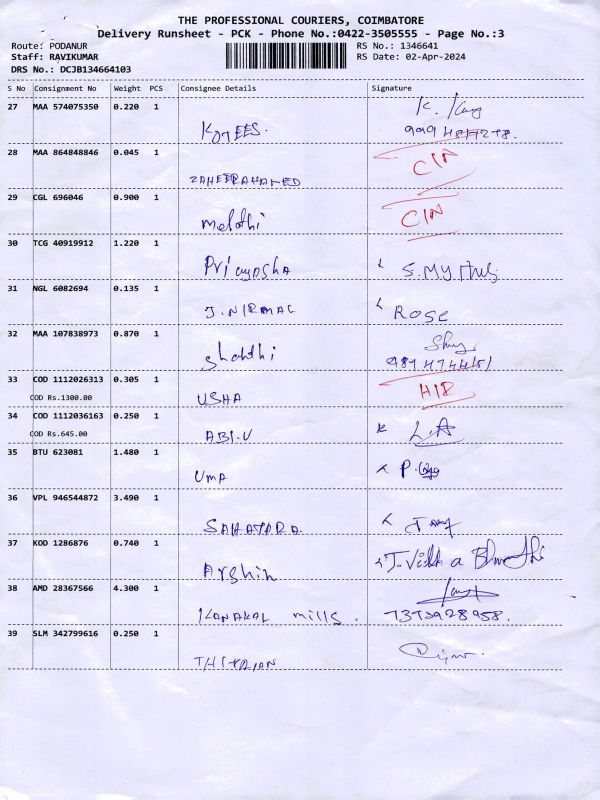 THE PROFESSIONAL COURIERS, COIMBATORE
Delivery Runsheet - PCK - Phone No.:0422-3505555 - Page No.:3
Route: PODANUR
Staff: RAVIKUMAR
DRS No.: DCJB134664103
RS No.: 1346641
RS Date: 02-Apr-2024
S No Consignment No Weight PCS Consignee Details Signature
27 MAA 574075350 0.220 1
K.
28 MAA 864848846 0.045 1
ZAHEERAHAMED
29 CGL 696046 0.900 1
Melothi
30 TCG 40919912 1.220 1
Priyosha S.
31 NGL 6082694 0.135 1
J. NIRMAL ROSE
32 MAA 107838973 0.870 1
Shakthi
33 COD 1112026313 0.305 1
COD Rs.1300.00
USHA
34 COD 1112036163 0.250 1
COD Rs.645.00
ABI.V L.A
35 BTU 623081 1.480 1
UMA P.
36 VPL 946544872 3.490 1
37 KOD 1286876 0.740 1
Arshin
38 AMD 28367566 4.300 1
mills. 7373928958.
39 SLM 342799616 0.250 1